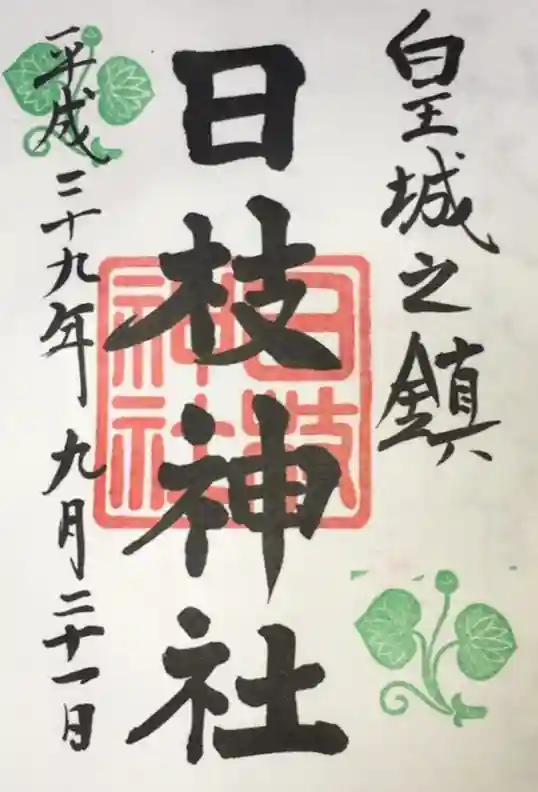 皇城之鎮
日枝神社
日枝
神社
平成二十九年 九月二十一日